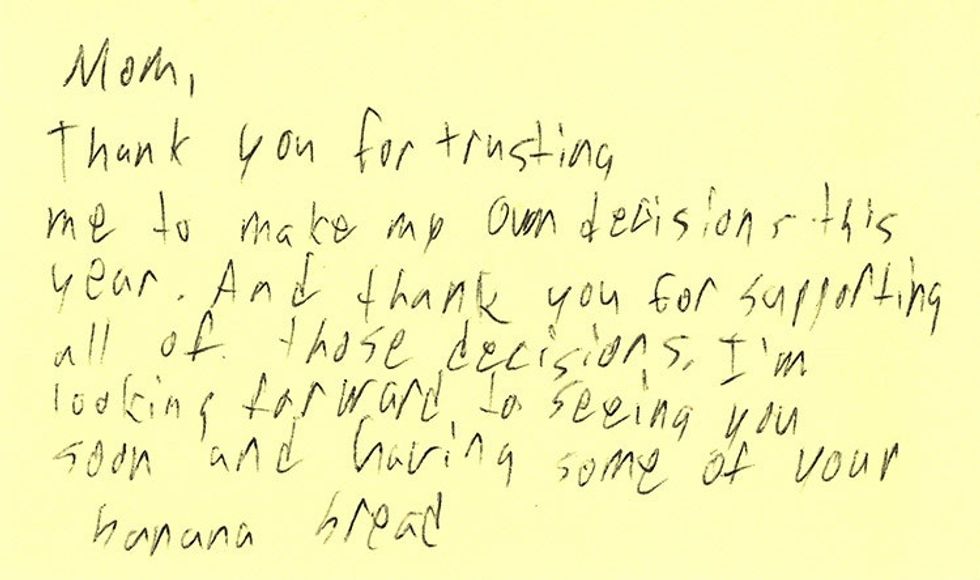 Mom,
Thank you for trusting
me to make my own decisions this
year. And thank you for supporting
all of those decisions. I'm
looking forward to seeing you
soon and having some of your
banana bread